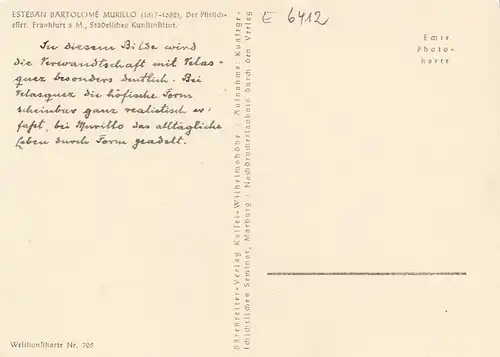 ESTEBAN BARTOLOMÉ MURILLO (1617–1682), Der Pfirsich-
esser. Frankfurt a M., Städelsches Kunstinstitut.
In diesem Bilde wird
die Verwandtschaft mit Velas-
quez besonders deutlich. Bei
Velasquez die höfische Form
scheinbar ganz realistisch er-
faßt, bei Murillo das alltägliche
Leben durch Form geadelt.
E 6412
Echte
Photo-
karte
Bärenreiter-Verlag Kassel-Wilhelmshöhe / Aufnahme: Kunstge-
schichtliches Seminar, Marburg / Nachdruckerlaubnis durch den Verlag
Weltkunstkarte Nr. 705